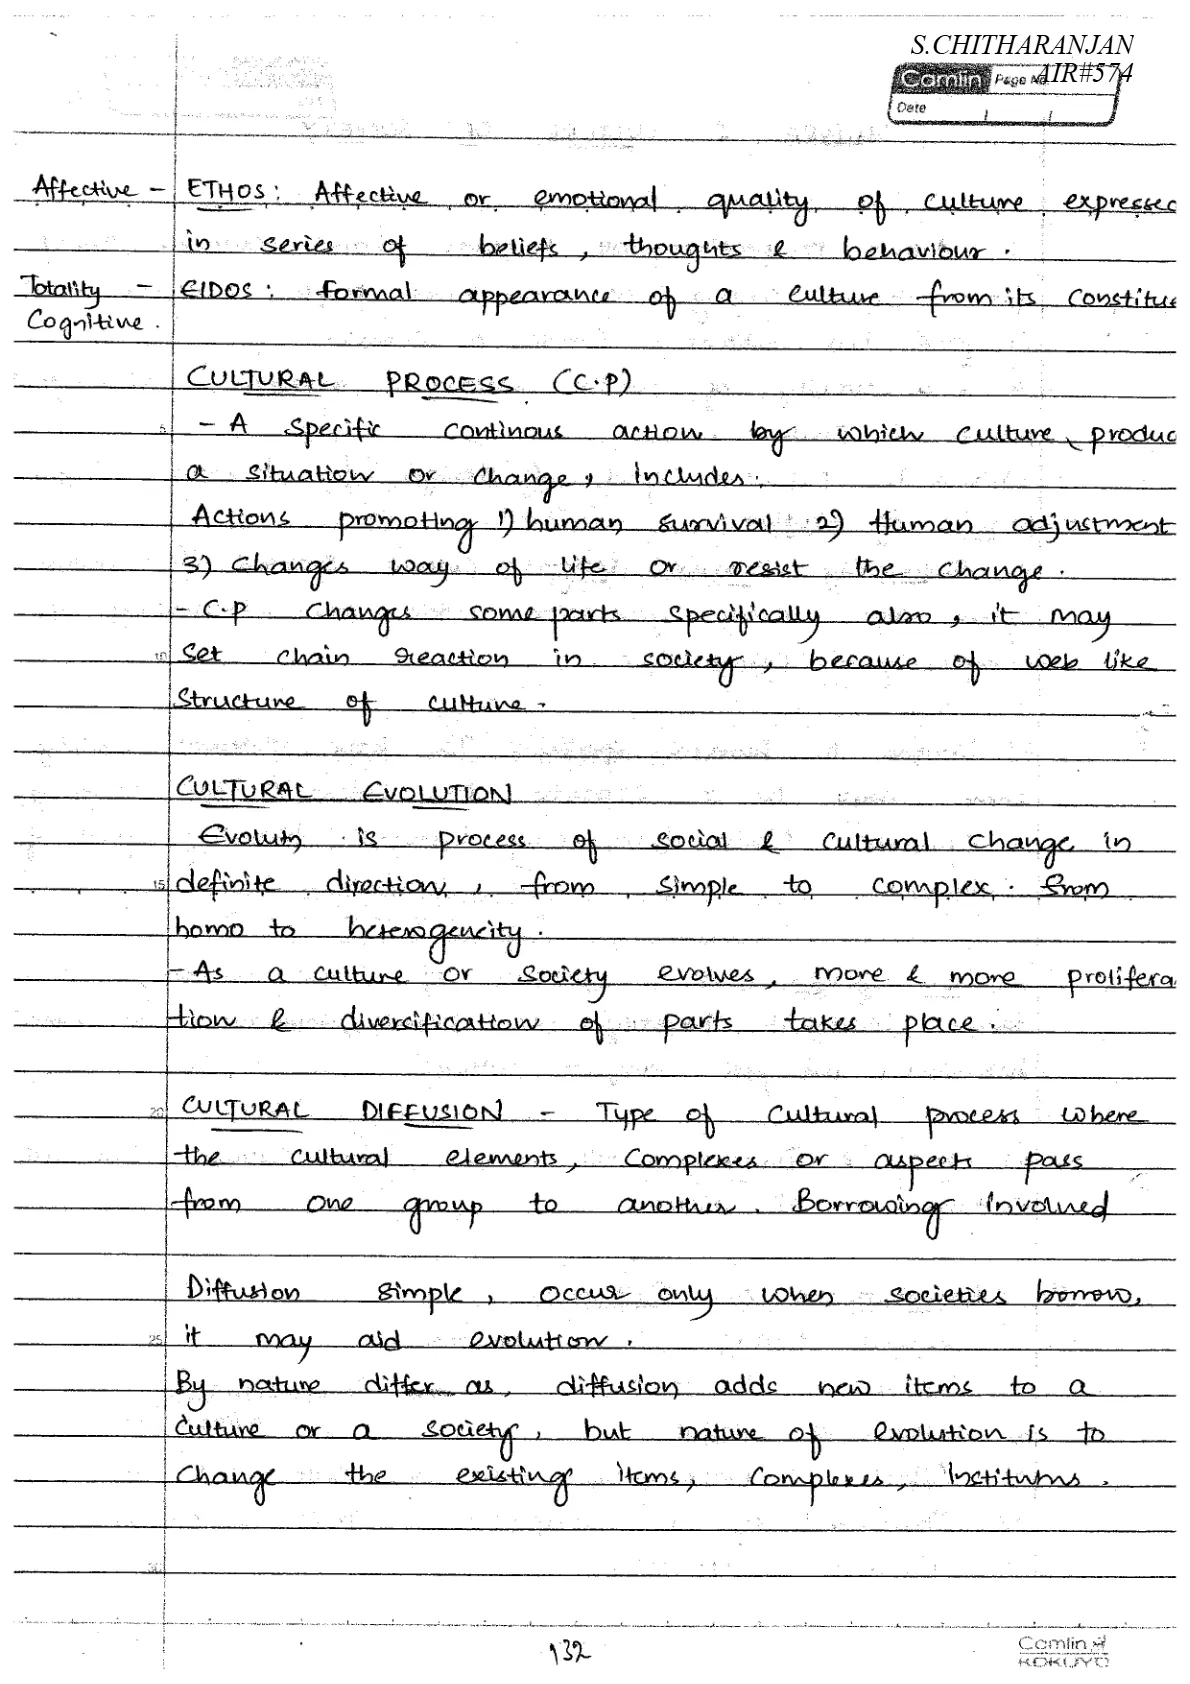 S.CHITHARANJAN
AIR#574
Camlin Page No.
Date
Affective - ETHOS : Affective or emotional quality of culture expressed
in series of beliefs, thoughts & behaviour.
Totality - EIDOS : formal appearance of a culture from its constitue
Cognitive.
CULTURAL PROCESS (C.P)
5 - A specific continous action by which culture produc
a situation or change, includes:
Actions promoting 1) human survival 2) Human adjustment
3) changes way of life or resist the change.
- C.P changes some parts specifically also, it may
10 set chain reaction in society, because of web like
structure of culture.
CULTURAL EVOLUTION
Evolutn is process of social & cultural change in
15 definite direction, from simple to complex. from
homo to heterogeneity.
- As a culture or society evolves, more & more prolifera
tion & divercification of parts takes place.
20 CULTURAL DIFFUSION - Type of cultural process where
the cultural elements, complexes or aspects pass
from one group to another. Borrowing involved
Diffusion simple, occur only when societies borrow,
25 it may aid evolution.
By nature differ as, diffusion adds new items to a
culture or a society, but nature of evolution is to
change the existing items, complexes, institutns.
30
132
Camlin
KOKUYO